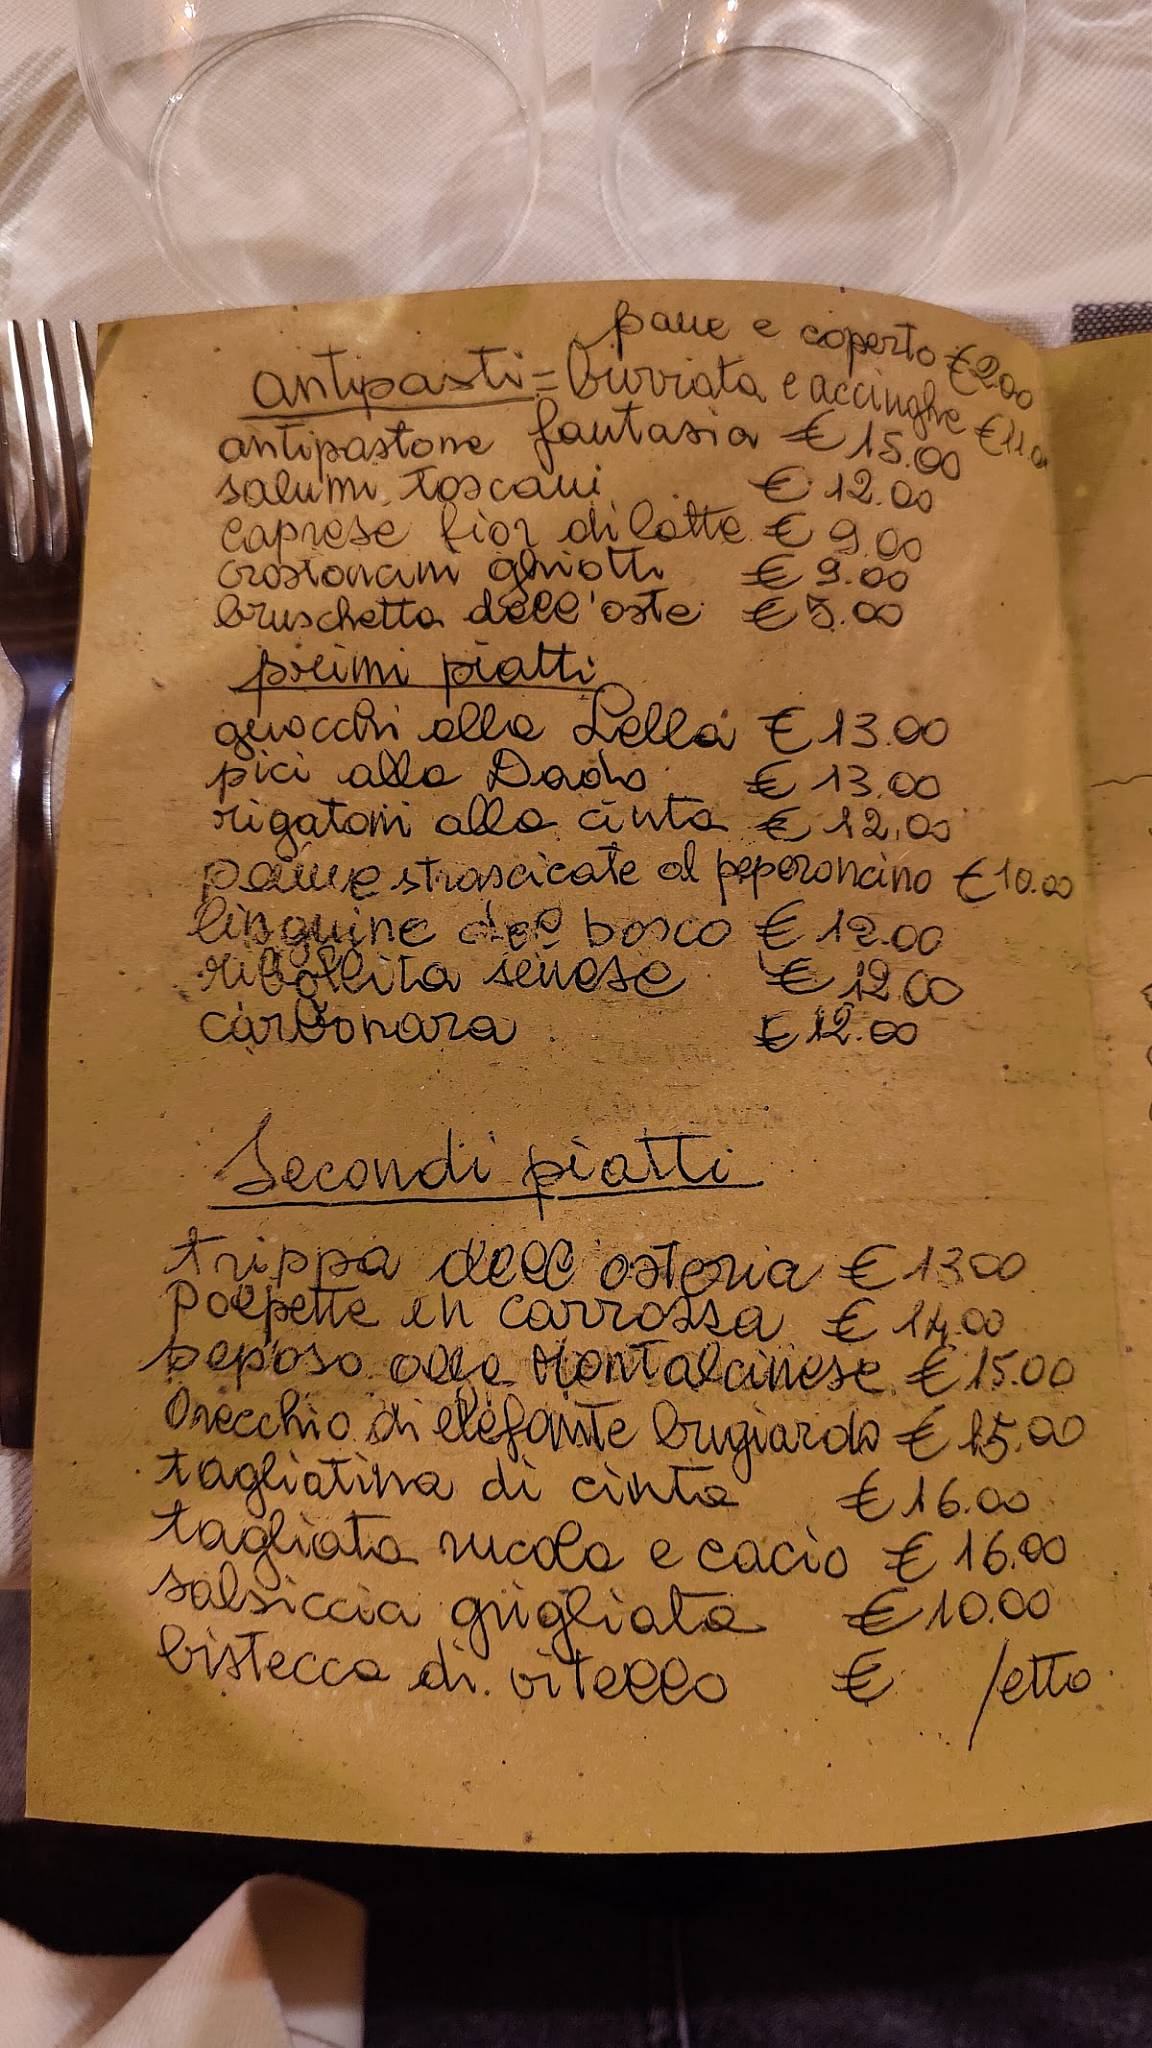 pane e coperto €2.00
antipasti = burrata e acciughe €11.0
antipastone fantasia € 15.00
salumi toscani € 12.00
caprese fior di latte € 9.00
crostoncini ghiotti € 9.00
bruschetta dell'oste € 5.00
primi piatti
gnocchi alla Lella € 13.00
pici alla Dado € 13.00
rigatoni alla cinta € 12.00
penne strascicate al peperoncino € 10.00
linguine del bosco € 12.00
ribollita senese € 12.00
carbonara € 12.00
Secondi piatti
trippa dell'osteria € 13.00
Polpette in carrozza € 14.00
peposo alla Montalcinese € 15.00
Orecchio di elefante bugiardo € 15.00
tagliatina di cinta € 16.00
tagliata rucola e cacio € 16.00
salsiccia grigliata € 10.00
bistecca di vitello € /etto